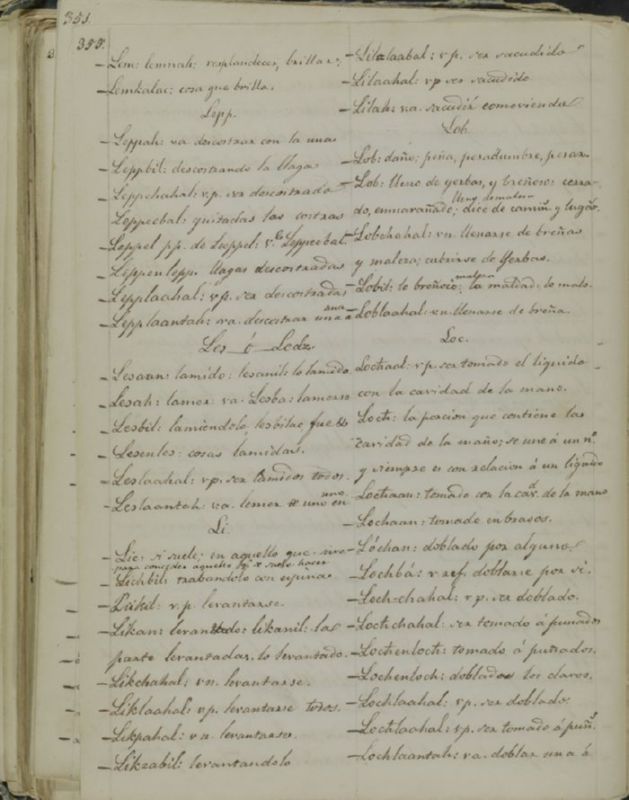 351.
355.
Lem: lemnah: resplandecer, brillar.
Lemkalac: cosa que brilla.
Lepp.
Leppah: va descostrar con la una
Leppbil: descostrando la llaga
Leppchahal: v.p. ser descostrado
Leppeebal: quitadas las costras
Leppel pp. de Leppel: v. Leppeebal.
Leppenlepp. llagas descostradas
Lepplaahal: vp. ser descostradas
Lepplaantah: va. descostrar una a una
Les ó Ledz
Lesaan: lamido: lesanil: lo lamido
Lesah: lamer: va. Lesba: lamerse
Lesbil: lamiendolo, lesbilac fue
Lesenles: cosas lamidas.
Leslaahal: vp. ser lamidos todos.
Leslaantah: va. lamer uno en uno
Li
Lic: si suele; en aquello que
para conceder aquello
Lichbil: trabandolo con
Likil: v.p. levantarse.
Likan: levantado: likanil: las
parte levantadas, lo levantado.
Likchahal: vn. levantarse.
Liklaahal: v.p. levantarse todos.
Likpahal: v.n. levantarse.
Likzabil: levantandolo
Lilaabal: vp. ser sacudido
Lilaahal: vp ser sacudido
Lilah: va. sacudir comoviendo
Lob.
Lob: daño; peña, peradumbre, pesar.
Lob: lleno de yerbas, y breñoso: cerra-
do, enmarañado; lleno de maleza dice de camino y lugar.
Lobchahal: vn. llenarse de breñas
y maleza; cubrirse de yerbas.
Lobil: lo breñoso; maleza la maldad: lo malo.
Loblaahal: vn. llenarse de breña.
Loc.
Lochaal: vp. ser tomado el liquido
con la cavidad de la mano.
Loch: la porcion que contiene la
cavidad de la mano; se une á un nº.
y siempre es con relacion á un liquido
Lochaan: tomado con la cavd. de la mano
Lochaan: tomado en brazos.
Lóchan: doblado por alguno.
Lochbá: v ref. doblarse por sí.
Loch-chahal: vp. ser doblado.
Lochchahal: ser tomado á puñados
Lochenloch: tomado á puñados.
Lochenloch: doblados los clavos.
Lochlaahal: vp. ser doblado
Lochlaahal: vp. ser tomado á puñs.
Lochlaantah: va. doblar una á